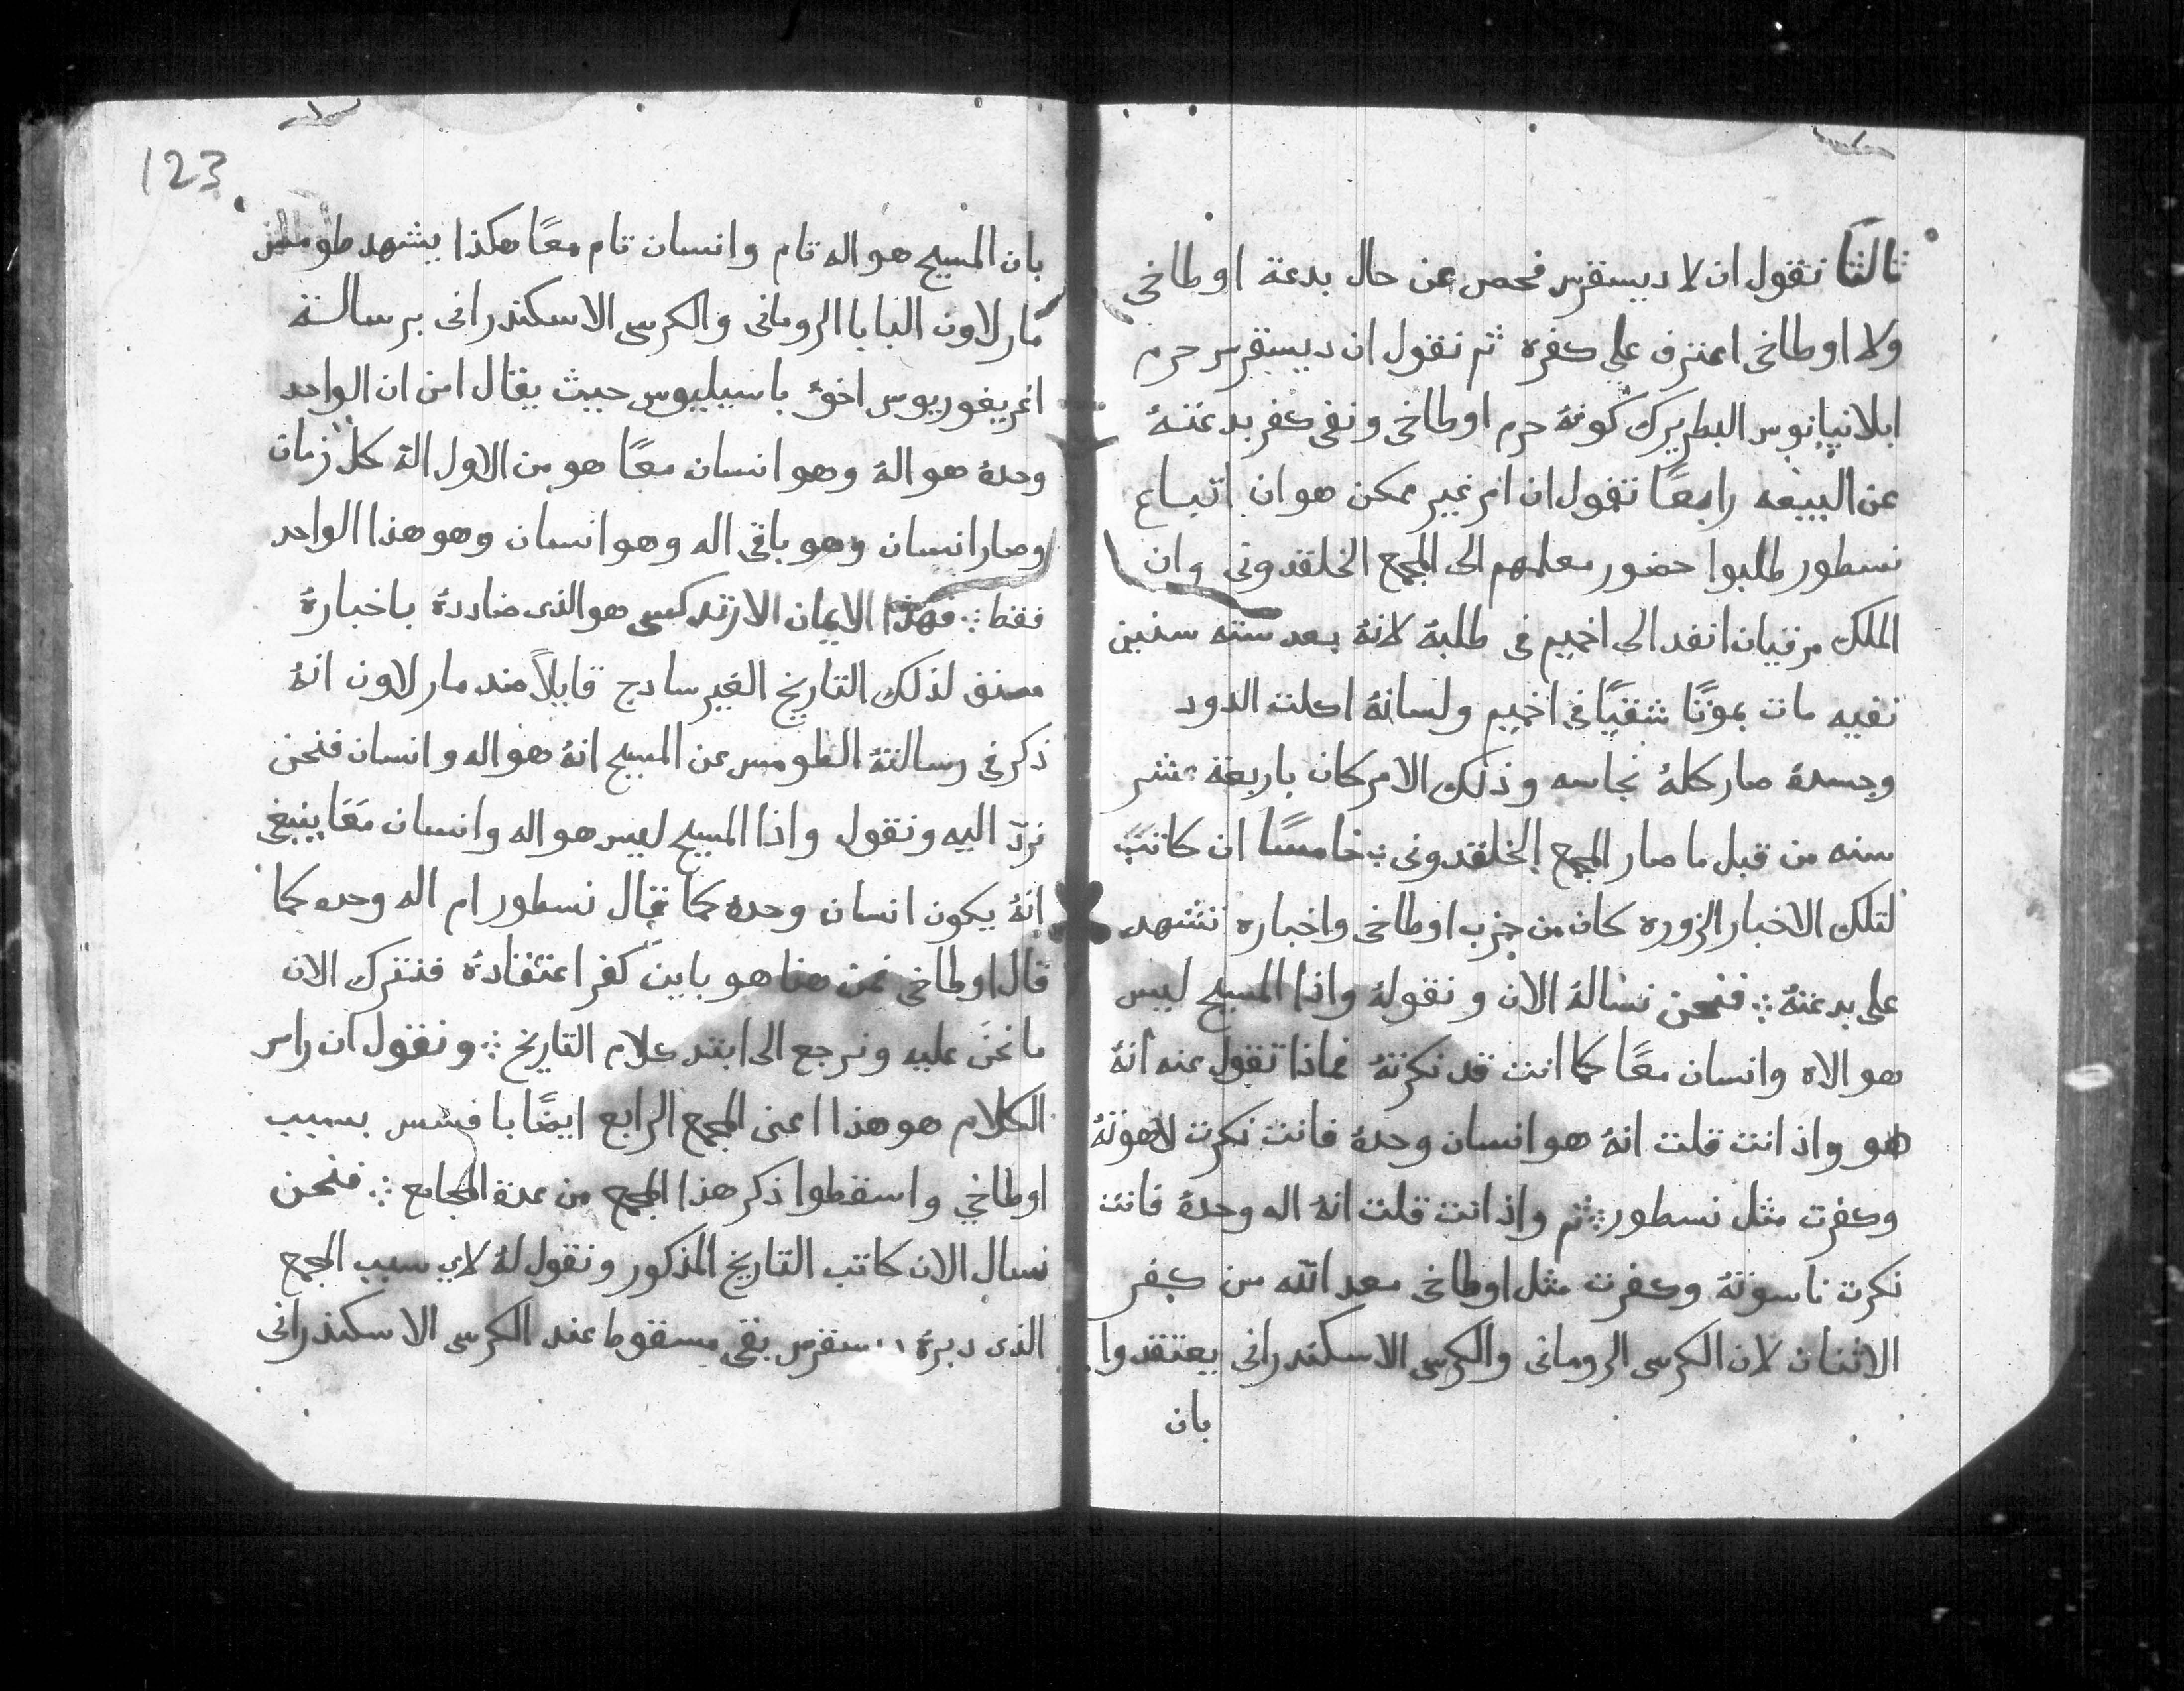 ثالثا نقول ان لا ديسقرس فحص عن حال بدعة اوطاخي
ولا اوطاخي اعترف علي كفره ثم نقول ان ديسقرس حرم
ابلانيانوس البطريرك كونهُ حرم اوطاخي ونفي كفر بدعتهُ
عن البيعه رابعًا نقول ان امر غير ممكن هو ان اتباع
نسطور طلبوا حضور معلمهم الى المجمع الخلقدوني وان
الملك مرقيان انفد الى اخميم في طلبهُ لانهُ بعد ستة سنين
نفيه مات بموتًا شقيًا في اخميم ولسانهُ اكلت الدود
وجسدهُ صار كلهُ نجاسه وذلك الامر كان باربعة عشر
سنه من قبل ما صار المجمع الخلقدوني خامسًا ان كاتب
لتلك الاخبار الزوره كان من حزب اوطاخي واخباره تشهد
على بدعتهُ ܀ فنحن نسالهُ الان ونقولهُ واذا المسيح ليس
هو الاه وانسان معًا كما انت قد نكرتهُ فماذا تقول عنه انهُ
هو واذ انت قلت انهُ هو انسان وحدهُ فانت نكرت لاهوتهُ
وكفرت مثل نسطور ܀ ثم واذ انت قلت انهُ اله وحدهُ فانت
نكرت ناسوتهُ وكفرت مثل اوطاخي معد الله من كفر
الاثنان لان الكرسى الرومانى والكرسى الاسكندرانى يعتقدوا
بان
123
بان المسيح هو اله تام وانسان تام معًا هكذا يشهد طومس
مار لاون البابا الرومانى والكرسى الاسكندرانى برسالة
اغريغوريوس اخوُ باسيليوس حيث يقال امن ان الواحد
وحدهُ هو الهُ وهو انسان معًا هو من الاول الهُ كل زمان
وصار انسان وهو باقى اله وهو انسان وهو هذا الواحد
فقط ܀ فهذا الايمان الارتدكسى هو الذى ضاددهُ باخبارهُ
مصنف لذلك التاريخ الغير سادج قايلاً ضد مار لاون انهُ
ذكر في رسالتهُ الطومس عن المسيح انهُ هو اله وانسان فنحن
نردّ اليه ونقول واذا المسيح ليس هو اله وانسان معًا ينبغي
انهُ يكون انسان وحدهُ كما قال نسطور ام اله وحده كما
قال اوطاخي فمن هنا هو باين كفر اعتقادهُ فنترك الان
ما نحن عليه ونرجع الى ابتد كلام التاريخ ܀ ونقول ان راس
الكلام هو هذا اعنى المجمع الرابع ايضًا بافسس بسبب
اوطاخي واسقطوا ذكر هذا المجمع من عدة المجامع ܀ فنحن
نسال الان كاتب التاريخ المذكور ونقول لهُ لاي سبب المجمع
الذى دبرهُ ديسقرس بقى مسقوط عند الكرسى الاسكندرانى